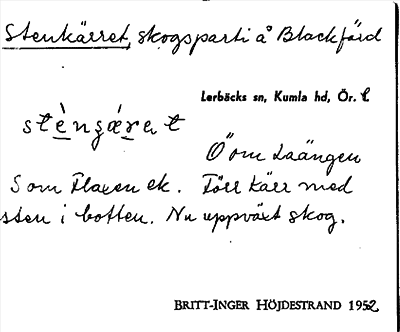 Stenkärret, skogsparti å Blackfärd
Lerbäcks sn, Kumla hd, Ör. l
stèngǽrat
Ö om Laängen
S om Flaxen ek. Förr kärr med
sten i botten. Nu uppväxt skog.
BRITT-INGER HÖJDESTRAND 1952